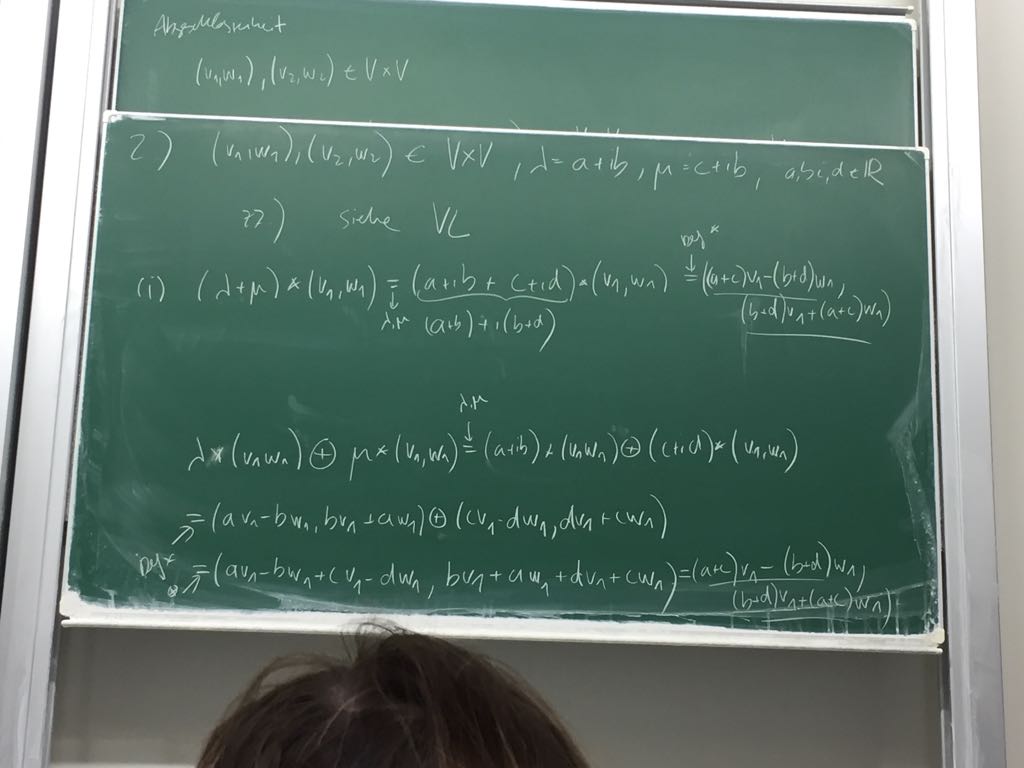 Abgeschlossenheit
(v₁,w₁), (v₂,w₂) ∈ V×V
2) (v₁,w₁), (v₂,w₂) ∈ V×V , λ = a+ib, μ = c+ib, a,b,c,d ∈ ℝ
zz) siehe VL
Def *
↓
(i) (λ+μ) * (v₁,w₁) = (a+ib + c+id) * (v₁,w₁) = ((a+c)v₁-(b+d)w₁,
↓
λ,μ (a+b)+i(b+d) (b+d)v₁+(a+c)w₁)
λ,μ
↓
λ * (v₁w₁) ⊕ μ * (v₁,w₁) = (a+ib) * (v₁w₁) ⊕ (c+id) * (v₁,w₁)
= (av₁-bw₁, bv₁+aw₁) ⊕ (cv₁-dw₁, dv₁+cw₁)
Def *
⊕ = (av₁-bw₁+cv₁-dw₁, bv₁+aw₁+dv₁+cw₁) = (a+c)v₁-(b+d)w₁,
(b+d)v₁+(a+c)w₁)